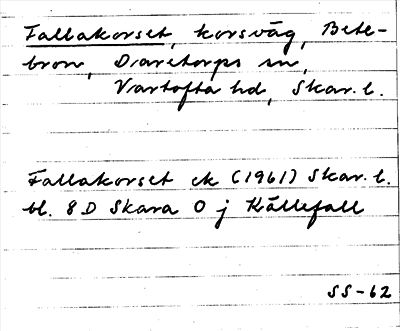 Fallakorset, korsväg, Bete-
bron, Daretorps sn,
Vartofta hd, Skar. l.
Fallakorset ek (1961) Skar. l.
bl. 8 D Skara O j Källefall
SS-62